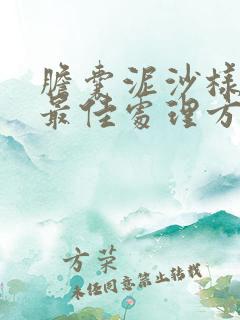 胆囊泥沙样
最佳处理方
方荣
未经同意禁止转载